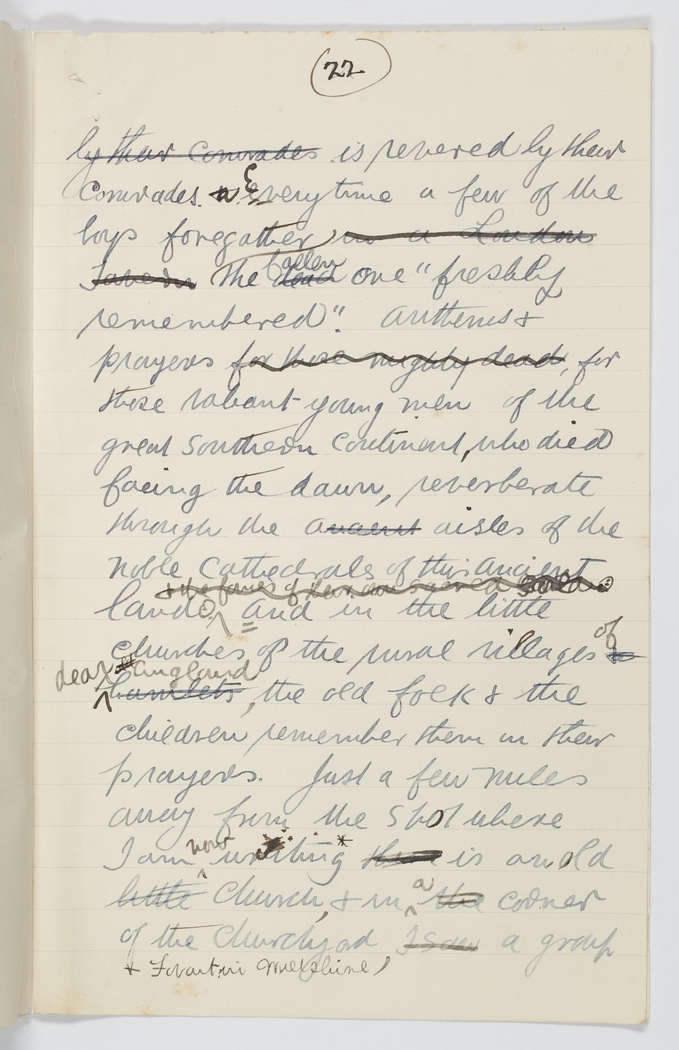 22
by their comrades is revered by their
comrades. Everytime a few of the
boys foregather in a London
Tavern The dead fallen one "freshly
remembered". Anthems &
prayers for those mighty dead, for
those valiant young men of the
great Southern Continent, who died
facing the dawn, reverberate
through the ancient aisles of the
noble Cathedrals of this ancient
& the fanes of
land. and in the little
churches of the rural villages of
dear England
hamlets, the old folk & the
children remember them in their
prayers. Just a few miles
away from the spot where
I am now writing * there is an old
little Church, & in a the corner
of the Churchyard I saw a group
* Fovant in Wiltshire)